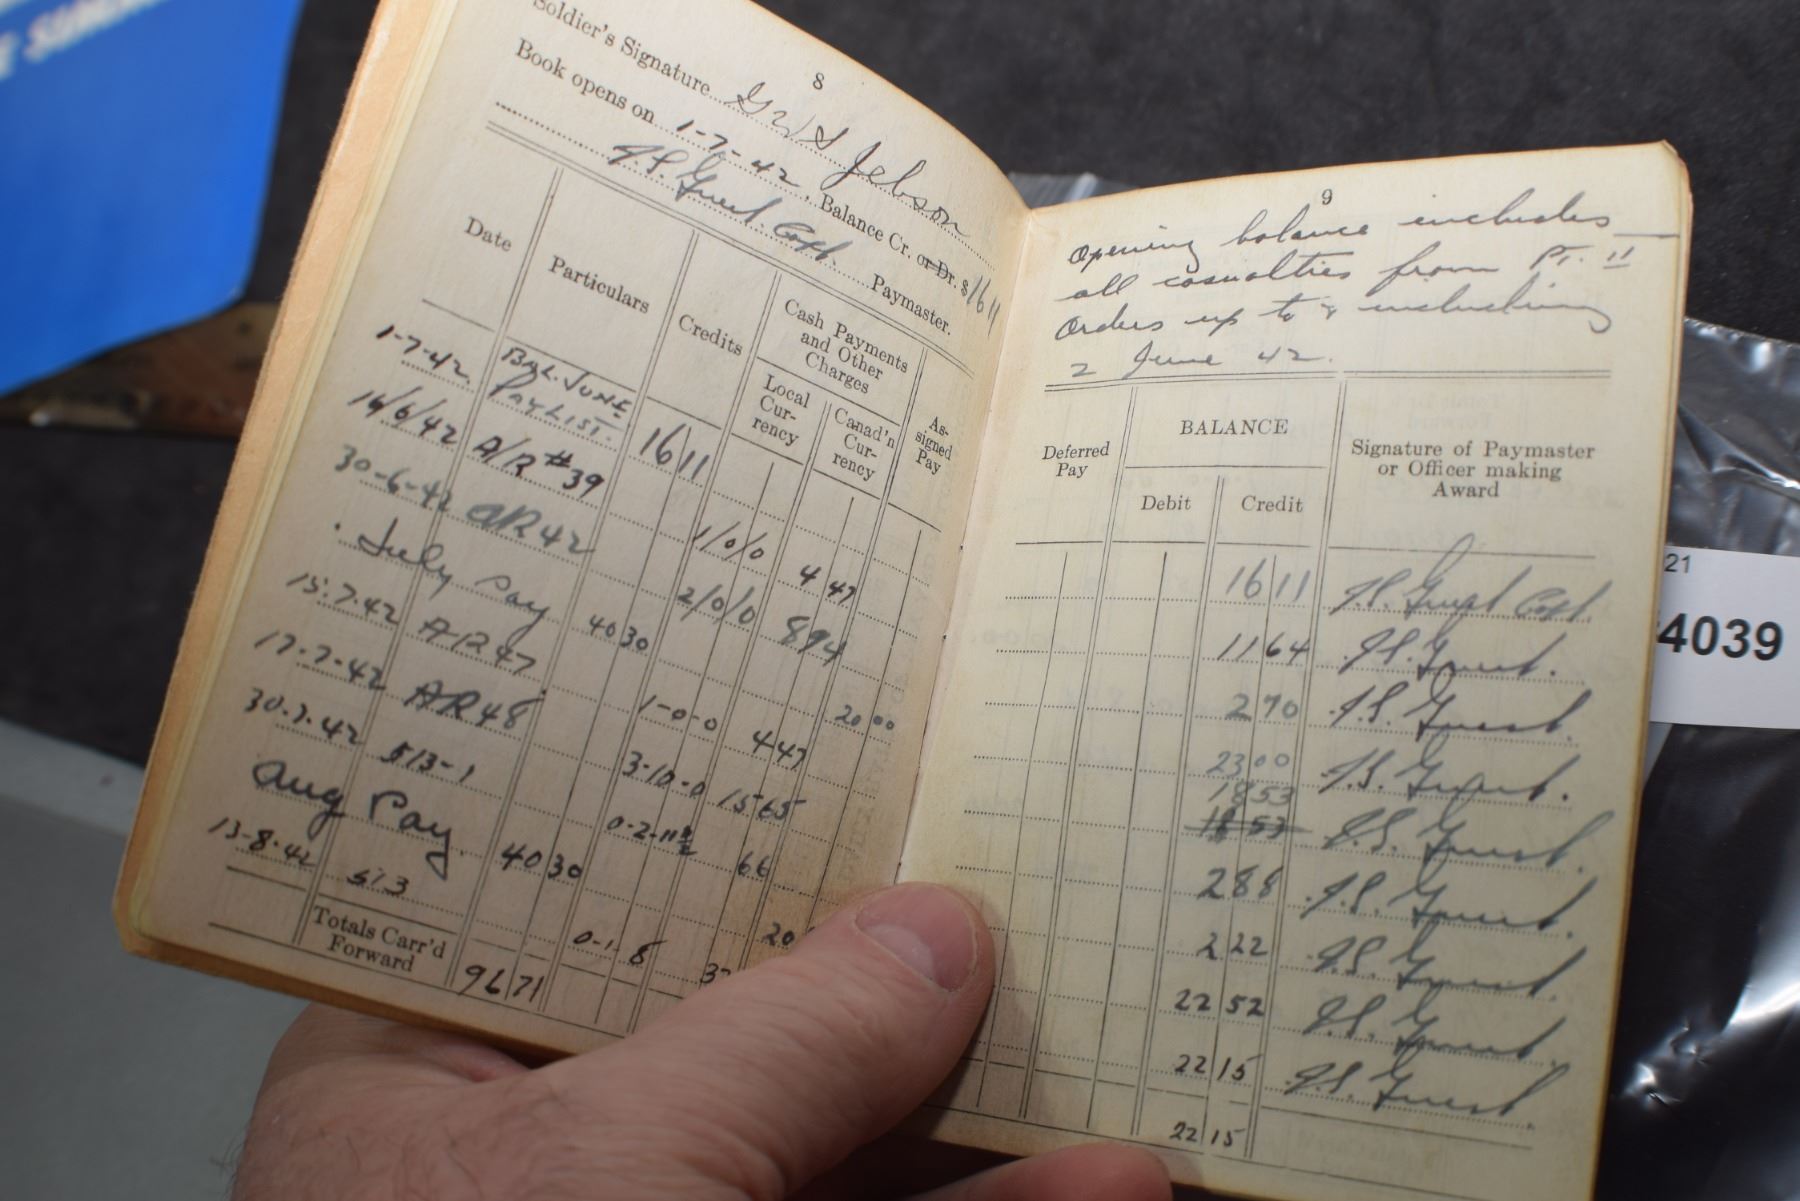 8
Soldier's Signature G W S Jebson
Book opens on 1-7-42, Balance Cr. or Dr. $ 16 11
J.S. Guest. Capt. Paymaster.
Date Particulars Credits Cash Payments and Other Charges Local Cur-rency Canad'n Cur-rency As-signed Pay
1-7-42. BAL. JUNE PAYLIST. 16 11
16/6/42 A/R #39 1/0/0 4 47
30-6-42 AR 42 2/0/0 8 94
July Pay 40 30 20 00
15.7.42 AR 47 1-0-0 4 47
17-7-42 AR 48 3-10-0 15 65
30.7.42 513-1 0-2-11½ 66
Aug Pay. 40 30 20
13-8-42 513 0-1-8 37
Totals Carr'd Forward 96 71
9
Opening balance includes
all casualties from Pt. II
Orders up to & including
2 June 42.
Deferred Pay BALANCE Debit Credit Signature of Paymaster or Officer making Award
16 11 J.S. Guest Capt.
11 64 J.S. Guest.
2 70 J.S. Guest.
23 00 J.S. Guest.
18 53
18 53 J.S. Guest.
2 88 J.S. Guest.
2 22 J.S. Guest.
22 52 J.S. Guest.
22 15 J.S. Guest
22 15
21
4039